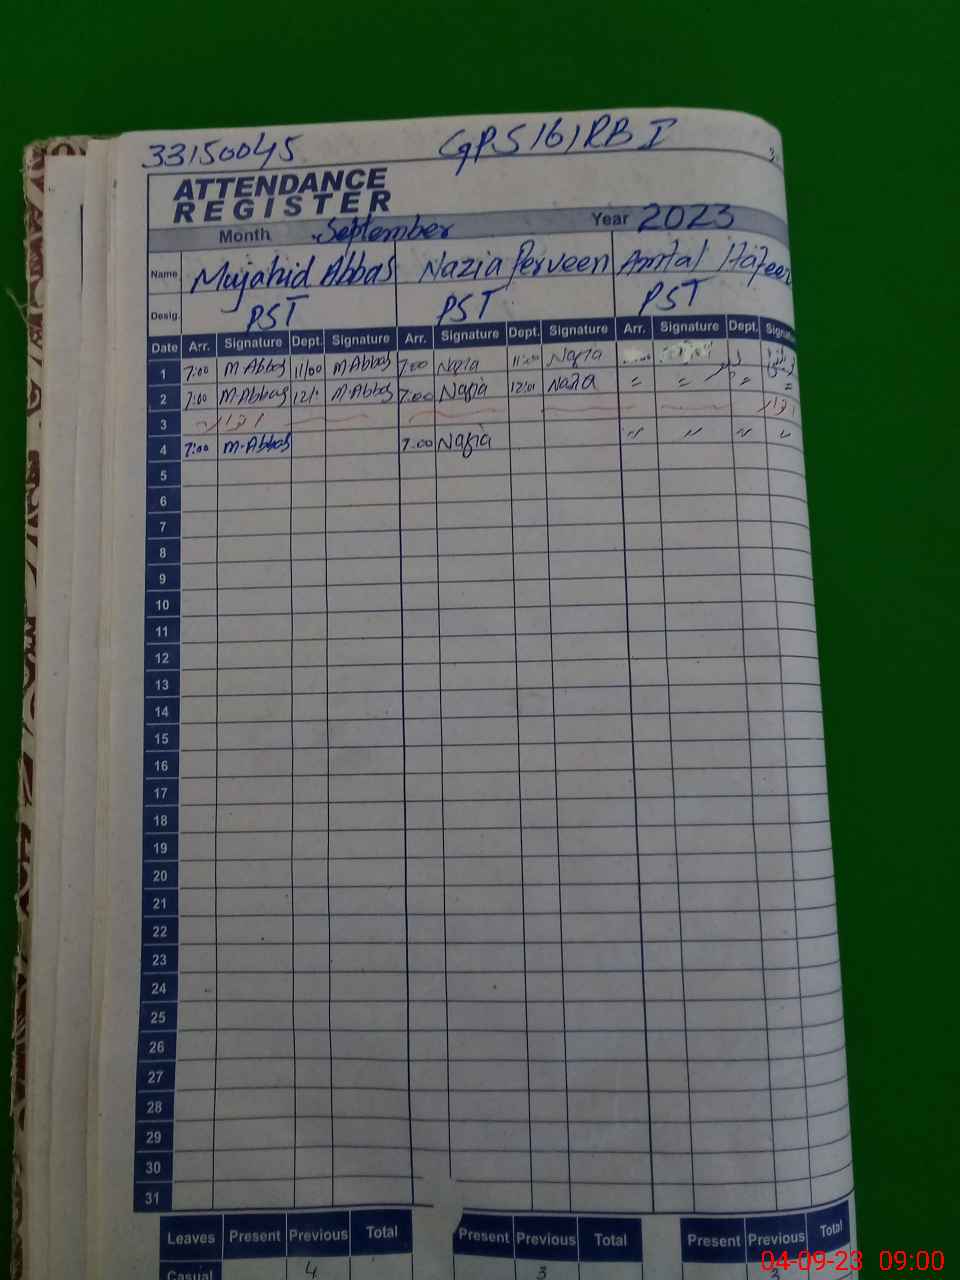 33150045 GPS 161 RB I
ATTENDANCE
REGISTER
Month September Year 2023
Name Mujahid Abbas Nazia Perveen Amtal Hafeez
Desig. PST PST PST
Date Arr. Signature Dept. Signature Arr. Signature Dept. Signature Arr. Signature Dept. Signatu
1 7:00 M Abbas 11/00 M Abbas 7:00 Nazia 11:00 Nazia
2 7:00 M.Abbas 12/: M Abbas 7:00 Nazia 12:01 Nazia " " " "
3
4 7:00 M.Abbas 7:00 Nazia " " " "
5
6
7
8
9
10
11
12
13
14
15
16
17
18
19
20
21
22
23
24
25
26
27
28
29
30
31
Leaves Present Previous Total Present Previous Total Present Previous Total
Casual 4 3 3
04-09-23 09:00